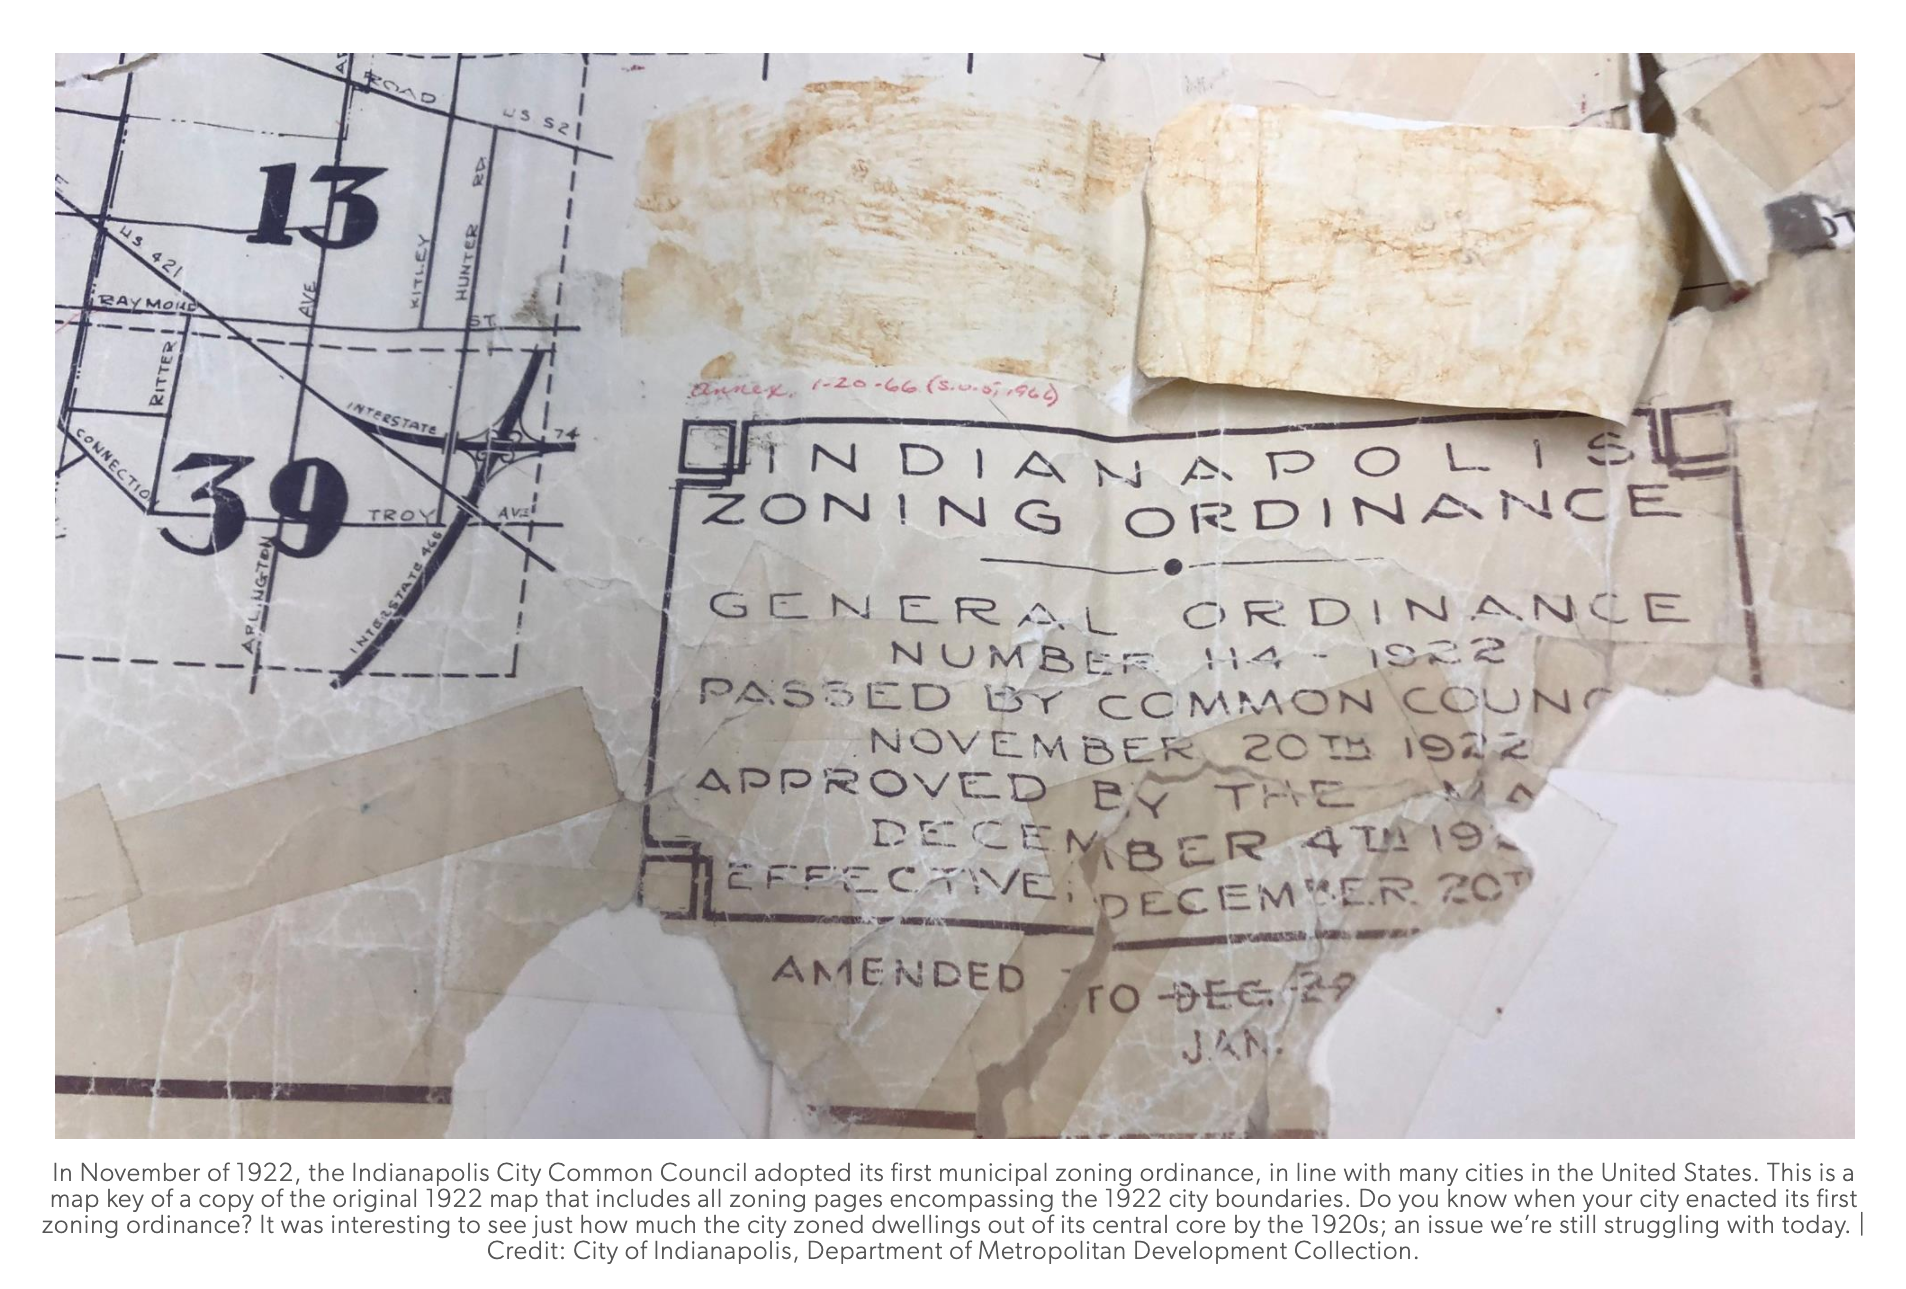 ROAD
US 52
13
RD
HUNTER
KITLEY
US 421
AVE
RAYMOND
ST.
RITTER
INTERSTATE
74
CONNECTION
39
TROY
AVE
ARLINGTON
INTERSTATE 465
annex. 1-20-66
INDIANAPOLIS
ZONING ORDINANCE
GENERAL ORDINANCE
NUMBER 114 - 1922
PASSED BY COMMON COUNC
NOVEMBER 20TH 1922
APPROVED BY THE MA
DECEMBER 4TH 19
EFFECTIVE; DECEMBER 20T
AMENDED TO DEC. 29
JAN.
In November of 1922, the Indianapolis City Common Council adopted its first municipal zoning ordinance, in line with many cities in the United States. This is a
map key of a copy of the original 1922 map that includes all zoning pages encompassing the 1922 city boundaries. Do you know when your city enacted its first
zoning ordinance? It was interesting to see just how much the city zoned dwellings out of its central core by the 1920s; an issue we’re still struggling with today. |
Credit: City of Indianapolis, Department of Metropolitan Development Collection.